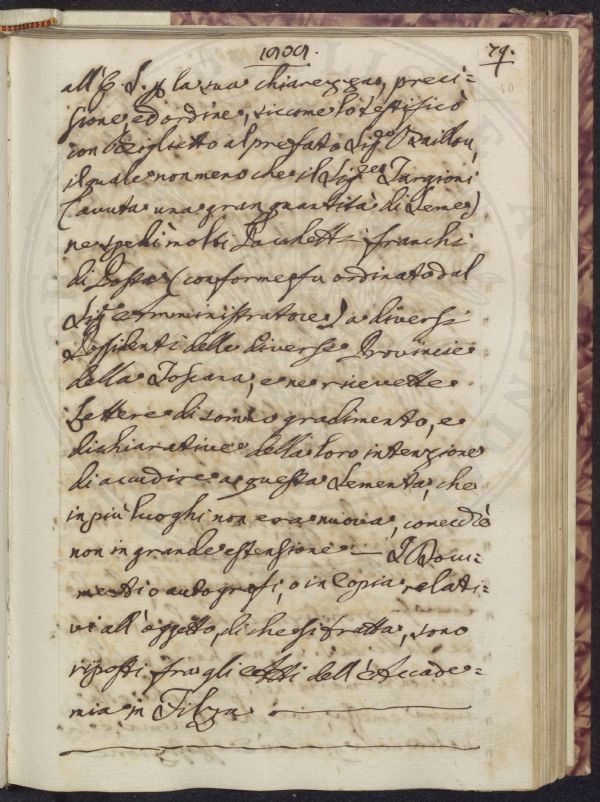 1809.
79.
40
all' E. S. p la sua chiarezza, preci=
sione, ed ordine, siccome lo testificò
con Biglietto al prefato Sigr Baillou,
il quale non meno che il Sigre Targioni
(avuta una gran quantità di Seme)
ne spedì molti Pacchetti franchi
di Posta (conforme fu ordinato dal
Sige Amministratore) a diversi
Possidenti delle diverse Provincie
della Toscana, e ne ricevette
Lettere di sommo gradimento, e
dichiarative della loro intenzione
di accudire a questa Sementa, che
in più luoghi non era nuova, comecchè
non in grande estensione — I Docu=
menti o autografi, o in Copia relati=
vi all' oggetto, di che si tratta, sono
riposti fra gli Atti dell' Accade=
mia in Filza